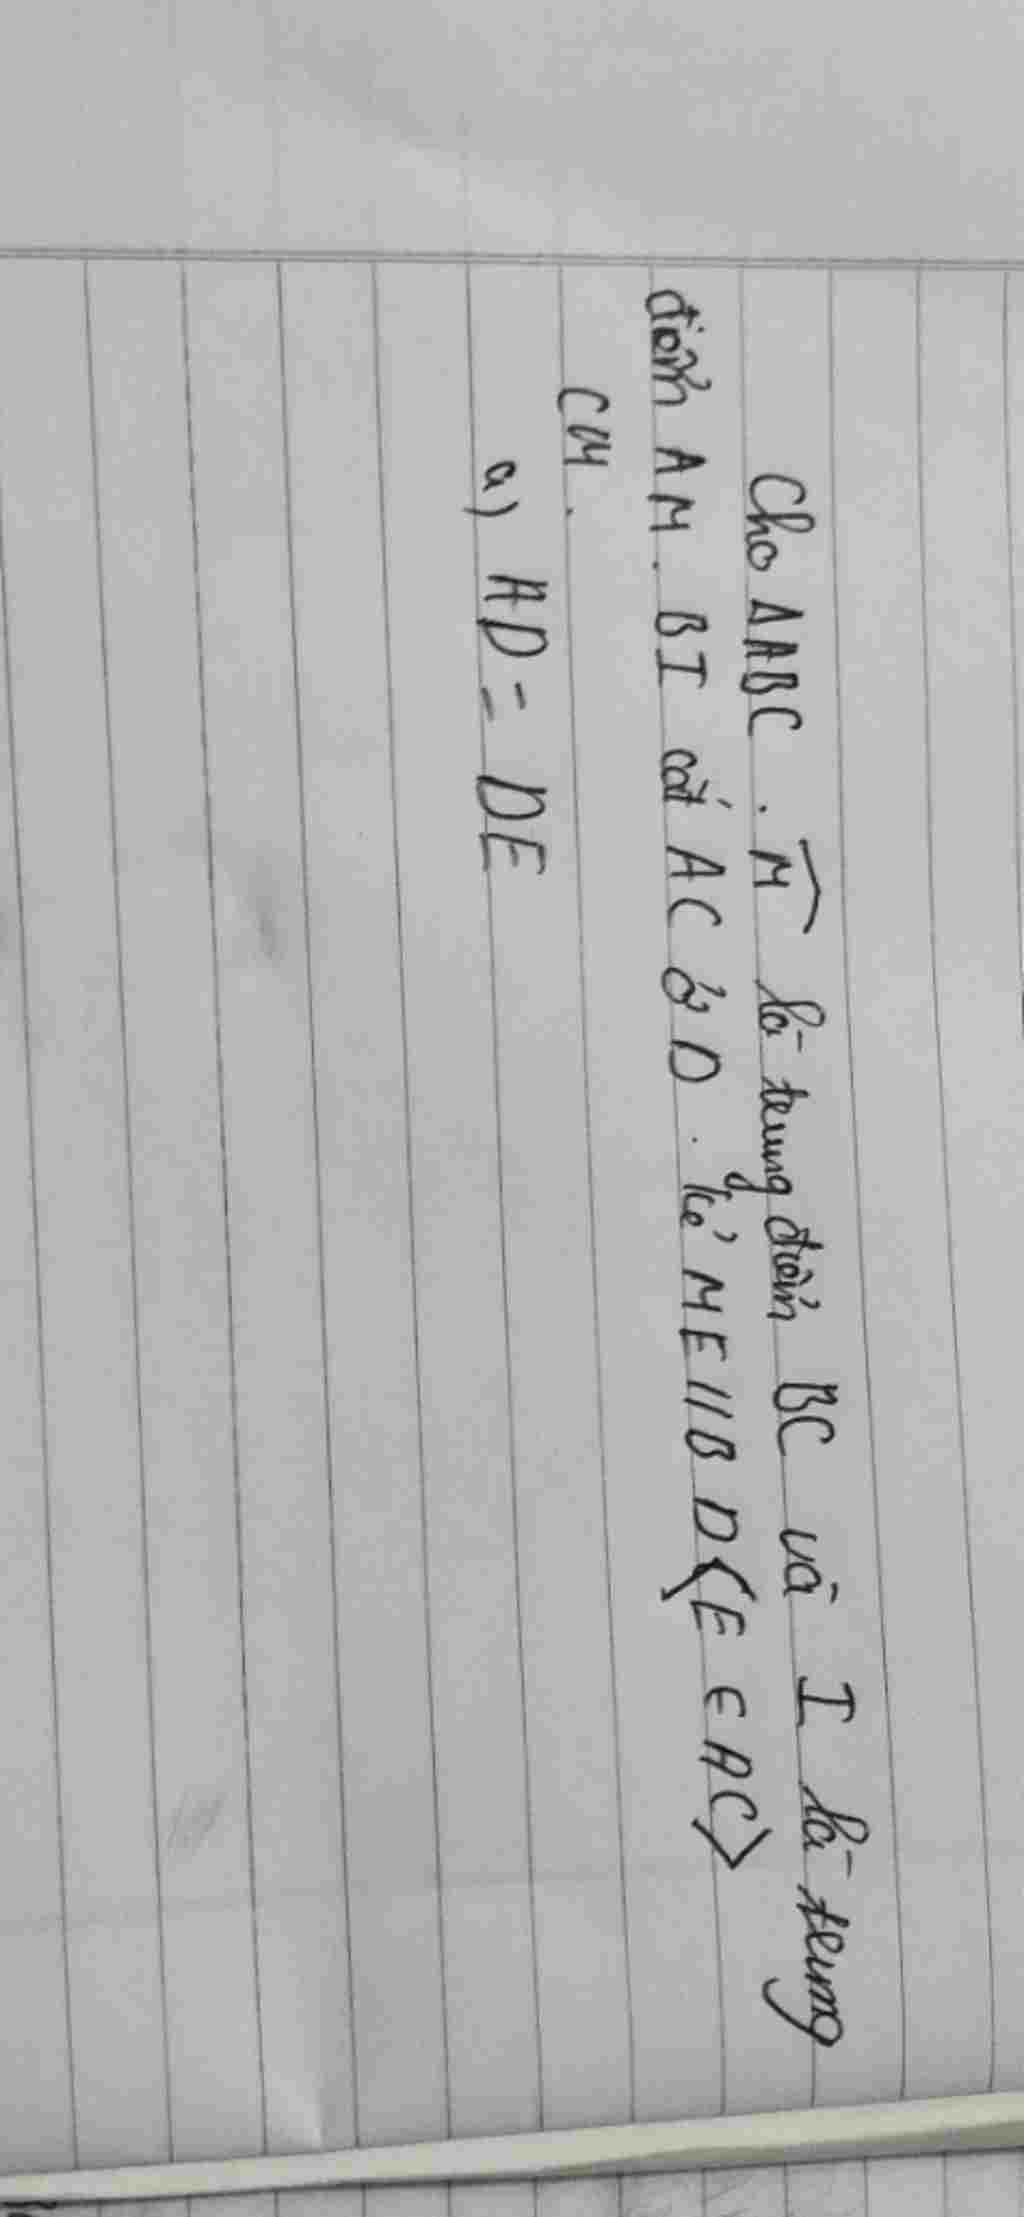 Cho ΔABC . M là trung điểm BC và I là trung
điểm AM . BI cắt AC ở D . kẻ ME // BD (E ∈ AC)
CM .
a) AD = DE